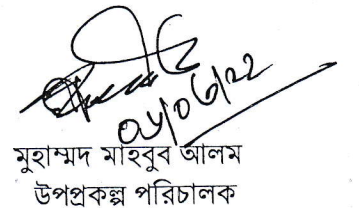 ০৬/০৬/২২
মুহাম্মদ মাহবুব আলম
উপপ্রকল্প পরিচালক